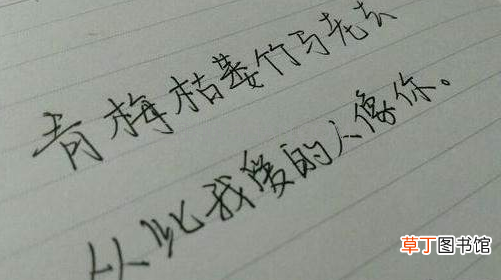 青梅枯萎竹马老去
从此我爱的人像你。
草丁图书馆